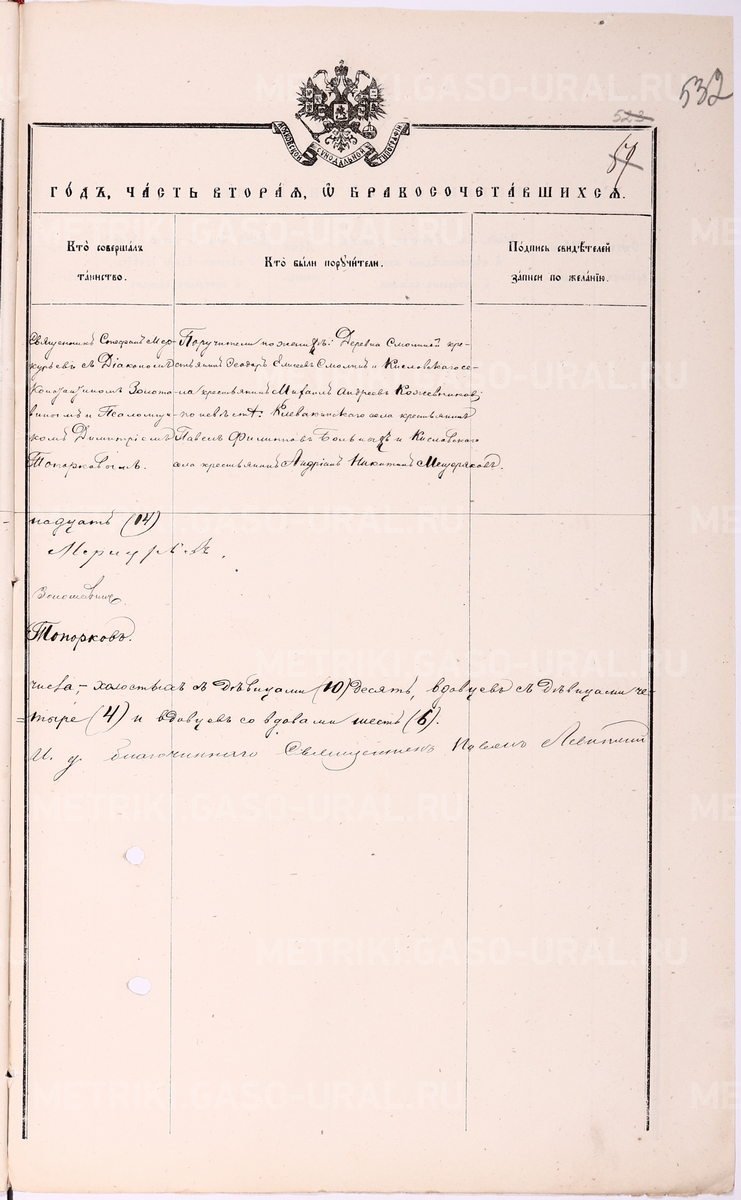 METRIKI.GASO-URAL.RU
532
523
57
МОСКОВСКОЙ СѴНОДАЛЬНОЙ ТИПОГРАФІИ
ГО́ДЪ, ЧА́СТЬ ВТОРА́Я, Ѡ҆ БРАКОСОЧЕТА́ВШИХСЯ.
Кто̀ соверша́лъ
та́инство.
Кто̀ бы́ли порꙋчи́тели.
По́дпись свидѣ́телей
за́писи по жела́нію.
Священникъ Стефанъ Мер-
курьевъ съ Діакономъ
Константиномъ Золота-
винымъ и Псаломщи-
комъ Димитріемъ
Топорковымъ.
Поручители по женихѣ: Деревни Смолиной кре-
стьянинъ Ѳеодоръ Елисеевъ Смолинъ и Кисловскаго се-
ла крестьянинъ Михаилъ Андреевъ Кожевниковъ;
по невѣстѣ: Клевакинскаго села крестьянинъ
Павелъ Филипповъ и Кисловскаго
села крестьянинъ Андріанъ Никитинъ Мещеряковъ.
надцать (14)
Меркурьевъ.
Золотавинъ.
Топорковъ.
числа, – холостыхъ съ дѣвицами (10) десять, вдовцевъ съ дѣвицами че-
тыре (4) и вдовцевъ со вдовами шесть (6).
И. д. благочиннаго Священникъ